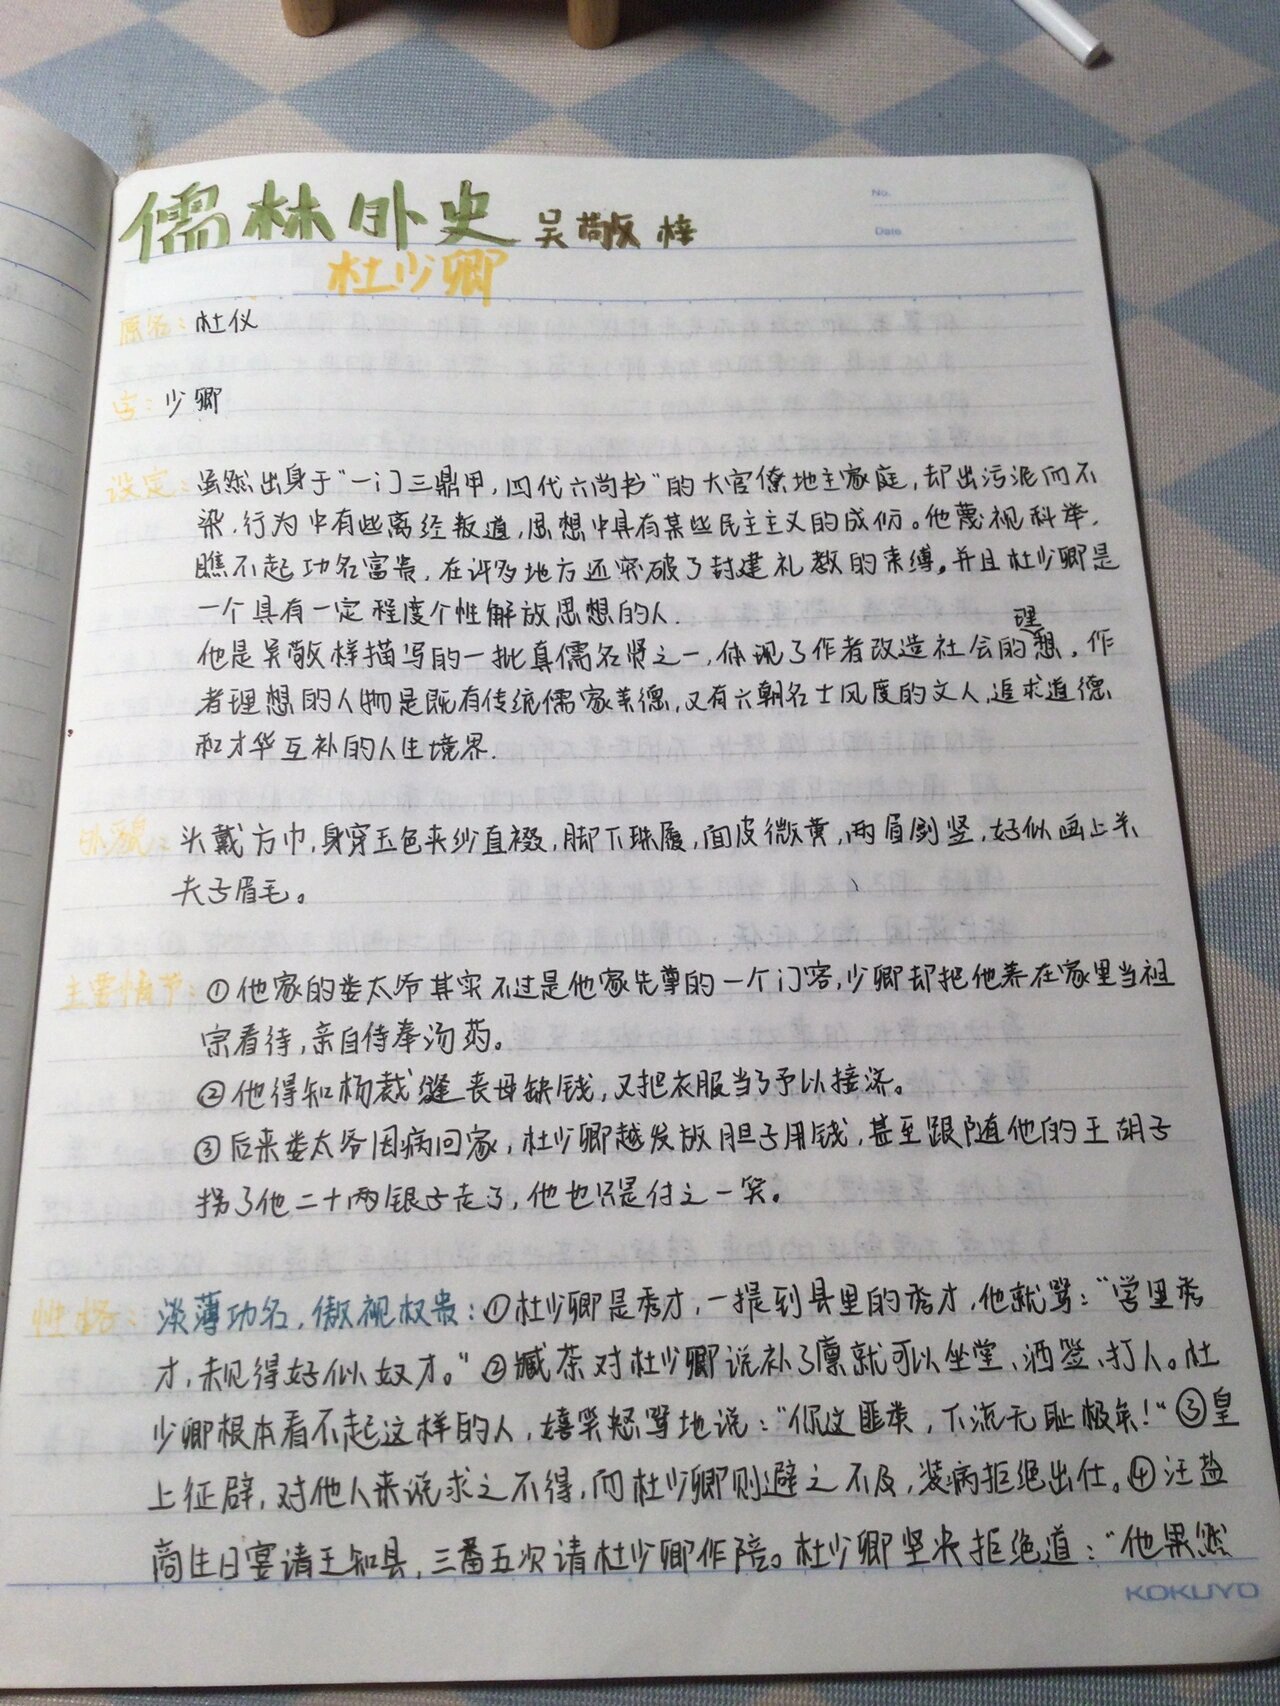 No.
Date
儒林外史 吴敬梓
杜少卿
原名:杜仪
字:少卿
设定:虽然出身于"一门三鼎甲,四代六尚书"的大官僚地主家庭,却出污泥而不
染,行为中有些离经叛道,思想中具有某些民主主义的成份。他蔑视科举,
瞧不起功名富贵,在许多地方还突破了封建礼教的束缚。并且杜少卿是
一个具有一定程度个性解放思想的人.
他是吴敬梓描写的一批真儒名贤之一,体现了作者改造社会的理想,作
者理想的人物是既有传统儒家美德,又有六朝名士风度的文人,追求道德
和才华互补的人生境界.
外貌:头戴方巾,身穿玉色夹纱直裰,脚下珠履,面皮微黄,两眉剑竖,好似画上关
夫子眉毛。
主要情节:①他家的娄太爷其实不过是他家先尊的一个门客,少卿却把他养在家里当祖
宗看待,亲自侍奉汤药。
②他得知杨裁缝丧母缺钱,又把衣服当了予以接济。
③后来娄太爷因病回家,杜少卿越发放胆子用钱,甚至跟随他的王胡子
拐了他二十两银子走了,他也只是付之一笑。
性格:淡薄功名,傲视权贵:①杜少卿是秀才,一提到县里的秀才,他就骂:"学里秀
才,未见得好似奴才。"②臧荼对杜少卿说补了廪就可以坐堂、洒签、打人。杜
少卿根本看不起这样的人,嬉笑怒骂地说:"你这匪类,下流无耻极矣!"③皇
上征辟,对他人来说求之不得,而杜少卿则避之不及,装病拒绝出仕。④汪盐
商生日宴请王知县,三番五次请杜少卿作陪。杜少卿坚决拒绝道:"他果然
KOKUYO